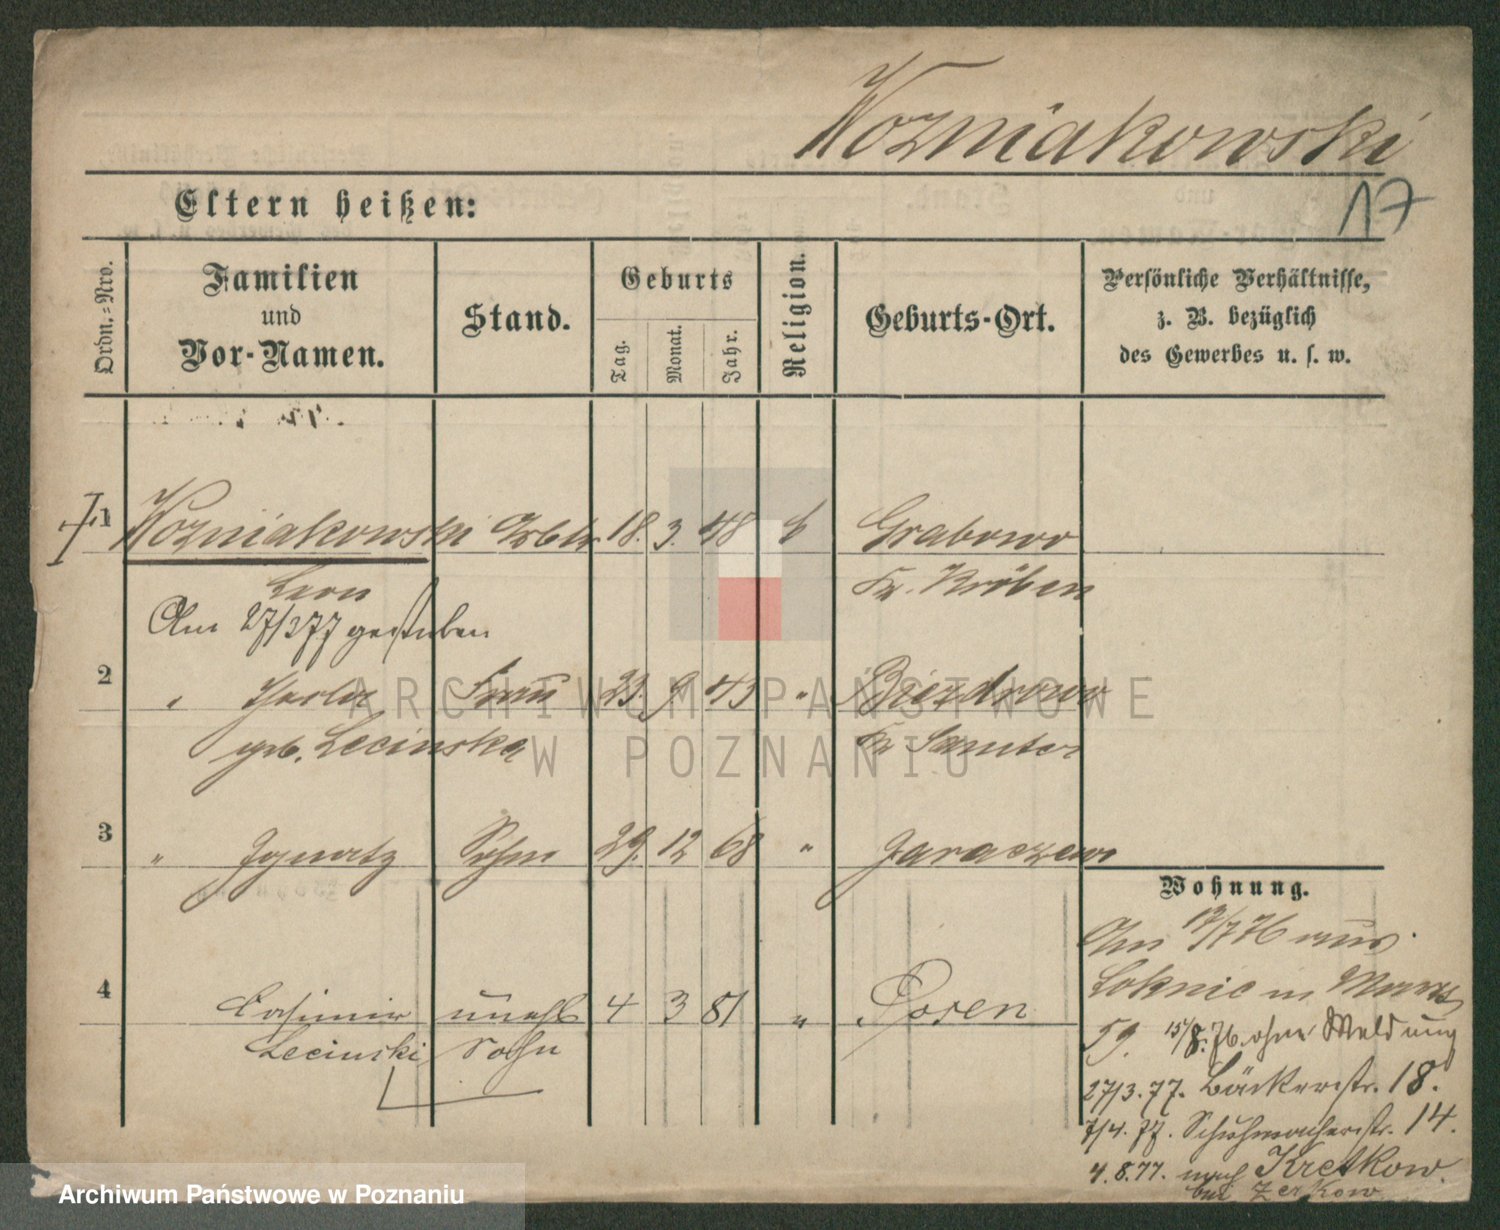 Wozniakowski
17
Eltern heißen:
Ordn.-Nro.
Familien
und
Vor-Namen.
Stand.
Geburts
Tag.
Monat.
Jahr.
Religion.
Geburts-Ort.
Persönliche Verhältnisse,
z. B. bezüglich
des Gewerbes u. s. w.
1 Wozniakowski Arbtr 18. 3. 48 k Grabowo
Leon Kr. Kröben
Am 27/3 77 gestorben
2 " Thecla Frau 23. 9 43 " Biezdrowo
geb. Lecinska Kr Samter
3 " Ignatz Sohn 29. 12 68 " Jaraczewo
Wohnung.
4 Casimir unehl 4 3 81 " Posen
Lecinski Sohn
Am 13/7 76 aus
59. 15/8. 76. ohne Meldung
27/3. 77. Bäckerstr. 18.
7/4. 77. Schuhmacherstr. 14.
4. 8. 77. nach Kretkow
bei Zerkow
ARCHIWUM PAŃSTWOWE
W POZNANIU
Archiwum Państwowe w Poznaniu